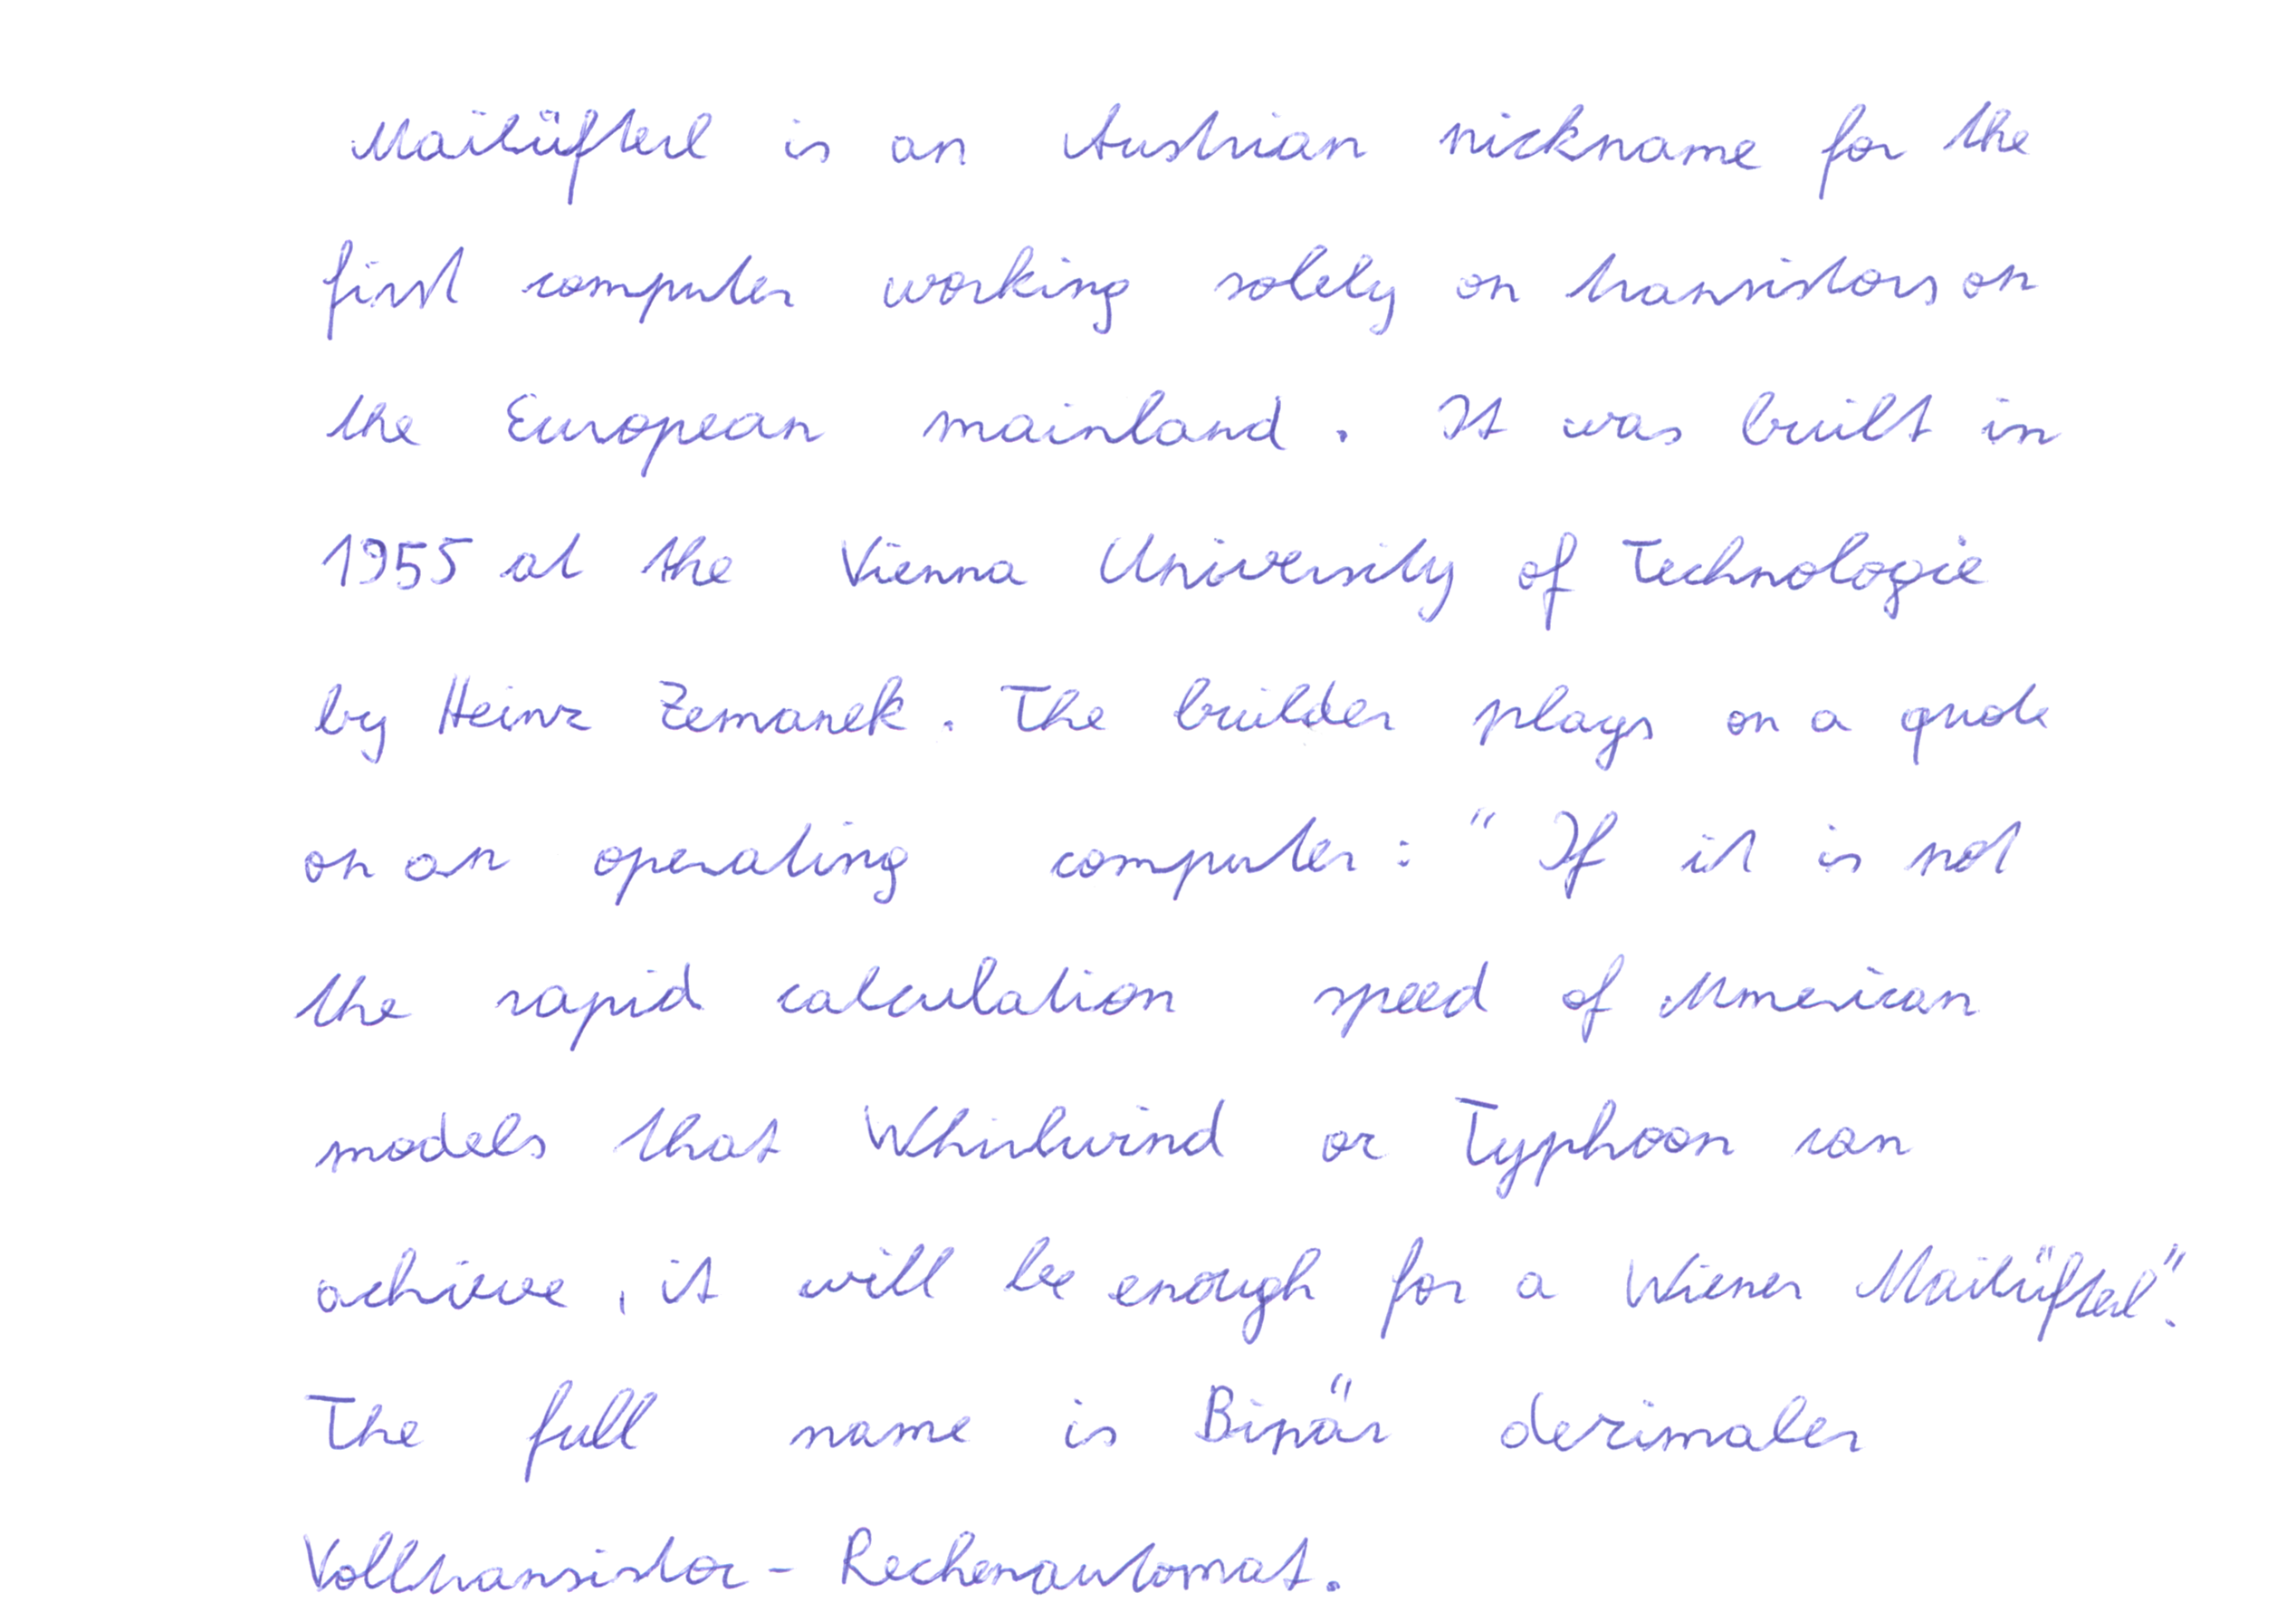 Mailüfterl is an Austrian nickname for the
first computer working solely on transistors on
the European mainland. It was built in
1955 at the Vienna University of Technologie
by Heinz Zemanek. The builder plays on a quote
on an operating computer: " If it is not
the rapid calculation speed of American
models that Whirlwind or Typhoon can
achieve, it will be enough for a Wiener Mailüfterl".
The full name is Binär dezimaler
Volltransistor-Rechenautomat.